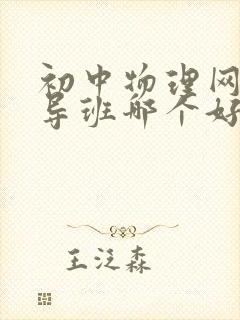 初中物理网
导班哪个好
王泛森